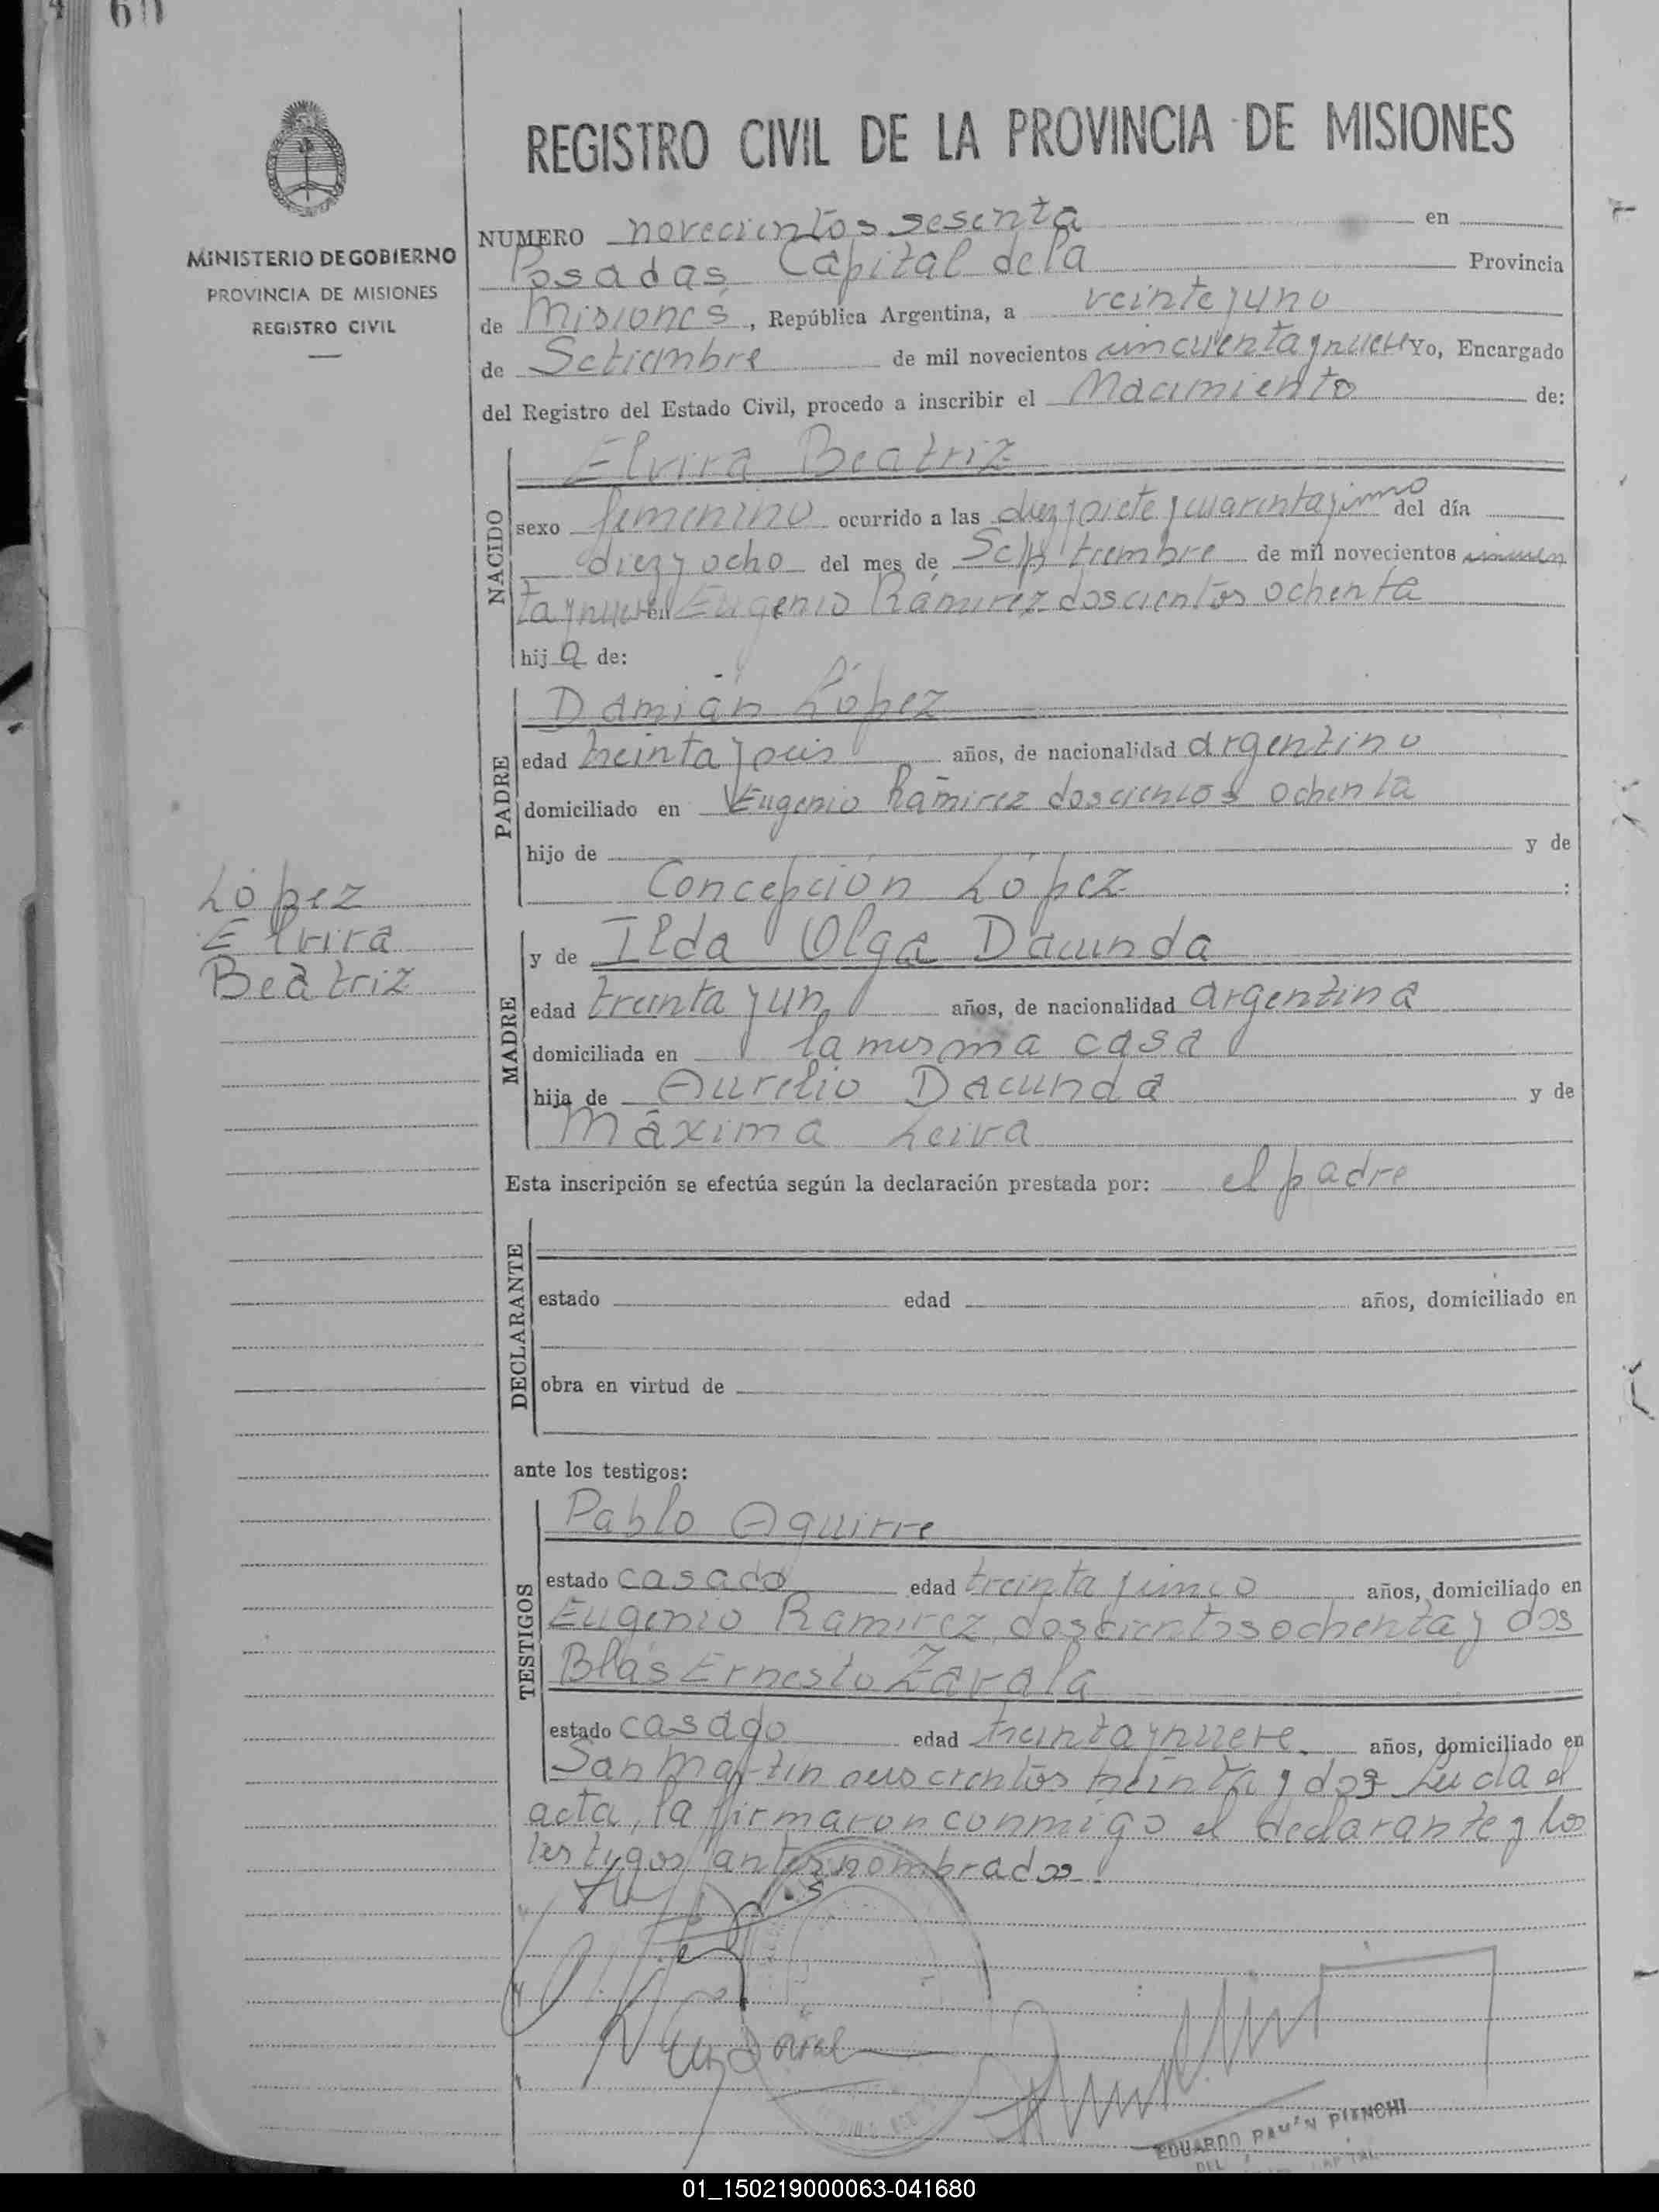 60
REGISTRO CIVIL DE LA PROVINCIA DE MISIONES
MINISTERIO DE GOBIERNO
PROVINCIA DE MISIONES
REGISTRO CIVIL
NUMERO novecientos sesenta en
Posadas Capital de la Provincia
de Misiones, República Argentina, a veinte y uno
de Setiembre de mil novecientos cincuenta y nueve Yo, Encargado
del Registro del Estado Civil, procedo a inscribir el Nacimiento de:
NACIDO
Elvira Beatriz
sexo femenino ocurrido a las diez y siete y cuarenta y cinco del día
diez y ocho del mes de Septiembre de mil novecientos cincuen
ta y nueve en Eugenio Ramirez doscientos ochenta
hija de:
PADRE
Damián López
edad treinta y seis años, de nacionalidad argentino
domiciliado en Eugenio Ramirez doscientos ochenta
hijo de y de
Concepción López :
López
Elvira
Beatriz
MADRE
y de Ilda Olga Dacunda
edad treinta y un años, de nacionalidad argentina
domiciliada en la misma casa
hija de Aurelio Dacunda y de
Máxima Leiva
Esta inscripción se efectúa según la declaración prestada por: el padre
DECLARANTE
estado edad años, domiciliado en
obra en virtud de
ante los testigos:
TESTIGOS
Pablo Aguirre
estado casado edad treinta y cinco años, domiciliado en
Eugenio Ramirez doscientos ochenta y dos
Blas Ernesto Zavala
estado casado edad treinta y nueve. años, domiciliado en
San Martin seiscientos treinta y dos Leida el
acta, la firmaron conmigo el declarante y los
testigos antes nombrados.
EDUARDO RAMÓN PIANCHI
01_150219000063-041680